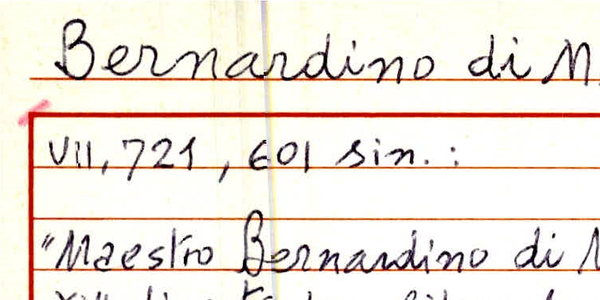 Bernardino di M.
VII, 721, 601 sin. :
"Maestro Bernardino di